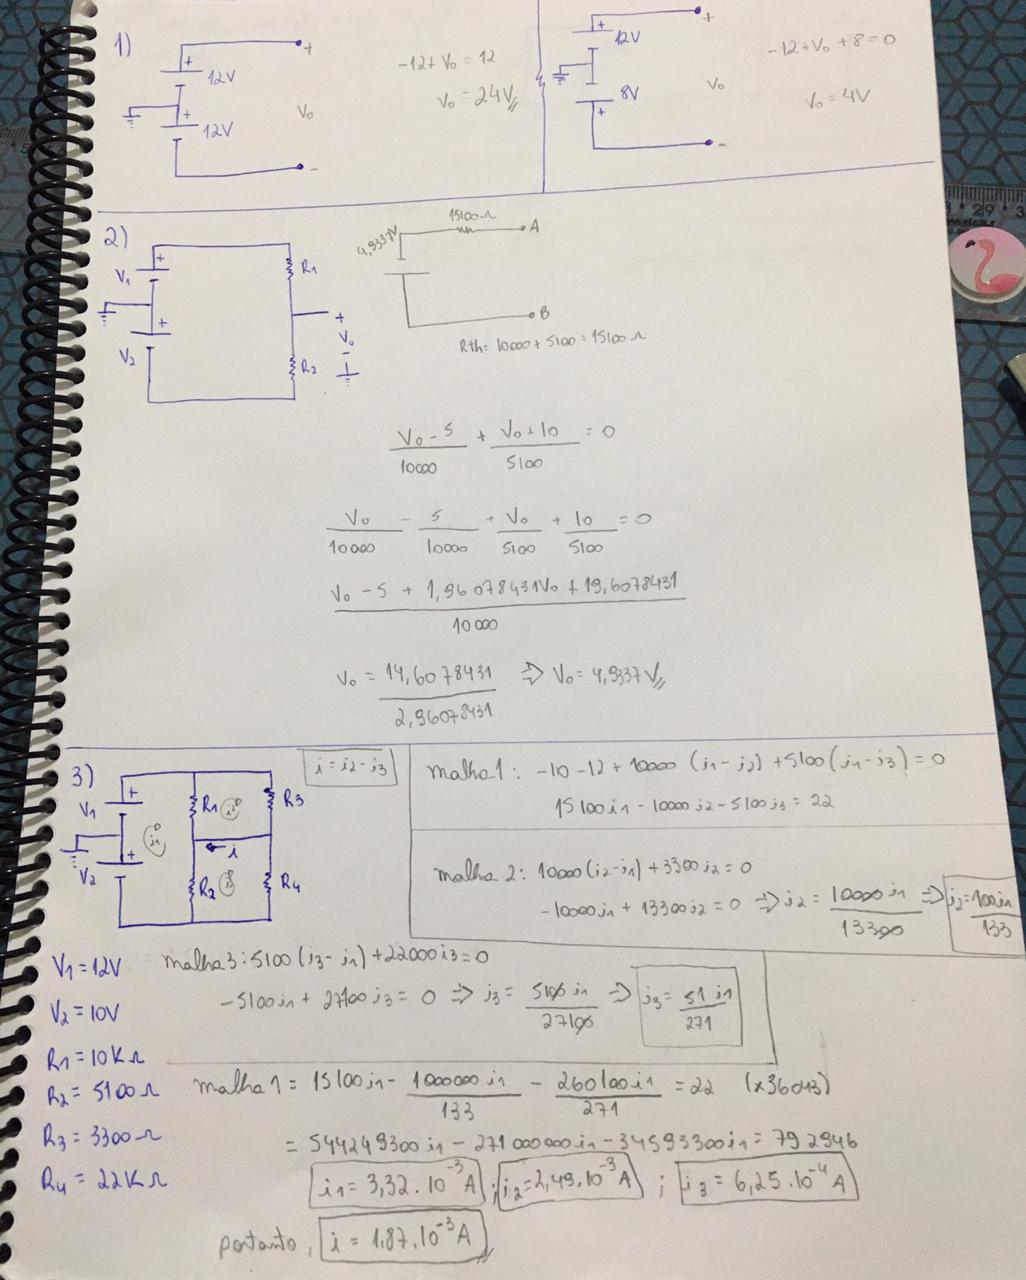 1)
+
12V
+
12V
+
Vo
-
-12 + Vo = 12
Vo = 24V
+
12V
8V
+
+
Vo
-
-12 + Vo + 8 = 0
Vo = 4V
2)
+
V1
+
V2
R1
R2
+
Vo
-
4,9337V
15100Ω
A
B
Rth = 10000 + 5100 = 15100 Ω
Vo - 5 / 10000 + Vo + 10 / 5100 = 0
Vo / 10000 - 5 / 10000 + Vo / 5100 + 10 / 5100 = 0
Vo - 5 + 1,96078431Vo + 19,6078431 / 10000
Vo = 14,6078431 / 2,96078431 => Vo = 4,9337 V
3)
+
V1
+
V2
i1
R1
i2
R3
i
R2
i3
R4
i = i2 - i3
malha 1: -10 - 12 + 10000 (i1 - i2) + 5100 (i1 - i3) = 0
15100 i1 - 10000 i2 - 5100 i3 = 22
malha 2: 10000 (i2 - i1) + 3300 i2 = 0
-10000 i1 + 13300 i2 = 0 => i2 = 10000 i1 / 13300 => i2 = 100 i1 / 133
V1 = 12V
V2 = 10V
R1 = 10KΩ
R2 = 5100 Ω
R3 = 3300 Ω
R4 = 22KΩ
malha 3: 5100 (i3 - i1) + 22000 i3 = 0
-5100 i1 + 27100 i3 = 0 => i3 = 5100 i1 / 27100 => i3 = 51 i1 / 271
malha 1 = 15100 i1 - 1000000 i1 / 133 - 260100 i1 / 271 = 22 (x36043)
= 544249300 i1 - 271000000 i1 - 34593300 i1 = 792946
i1 = 3,32.10⁻³ A ; i2 = 2,49.10⁻³ A ; i3 = 6,25.10⁻⁴ A
portanto, i = 1,87.10⁻³ A
29 3